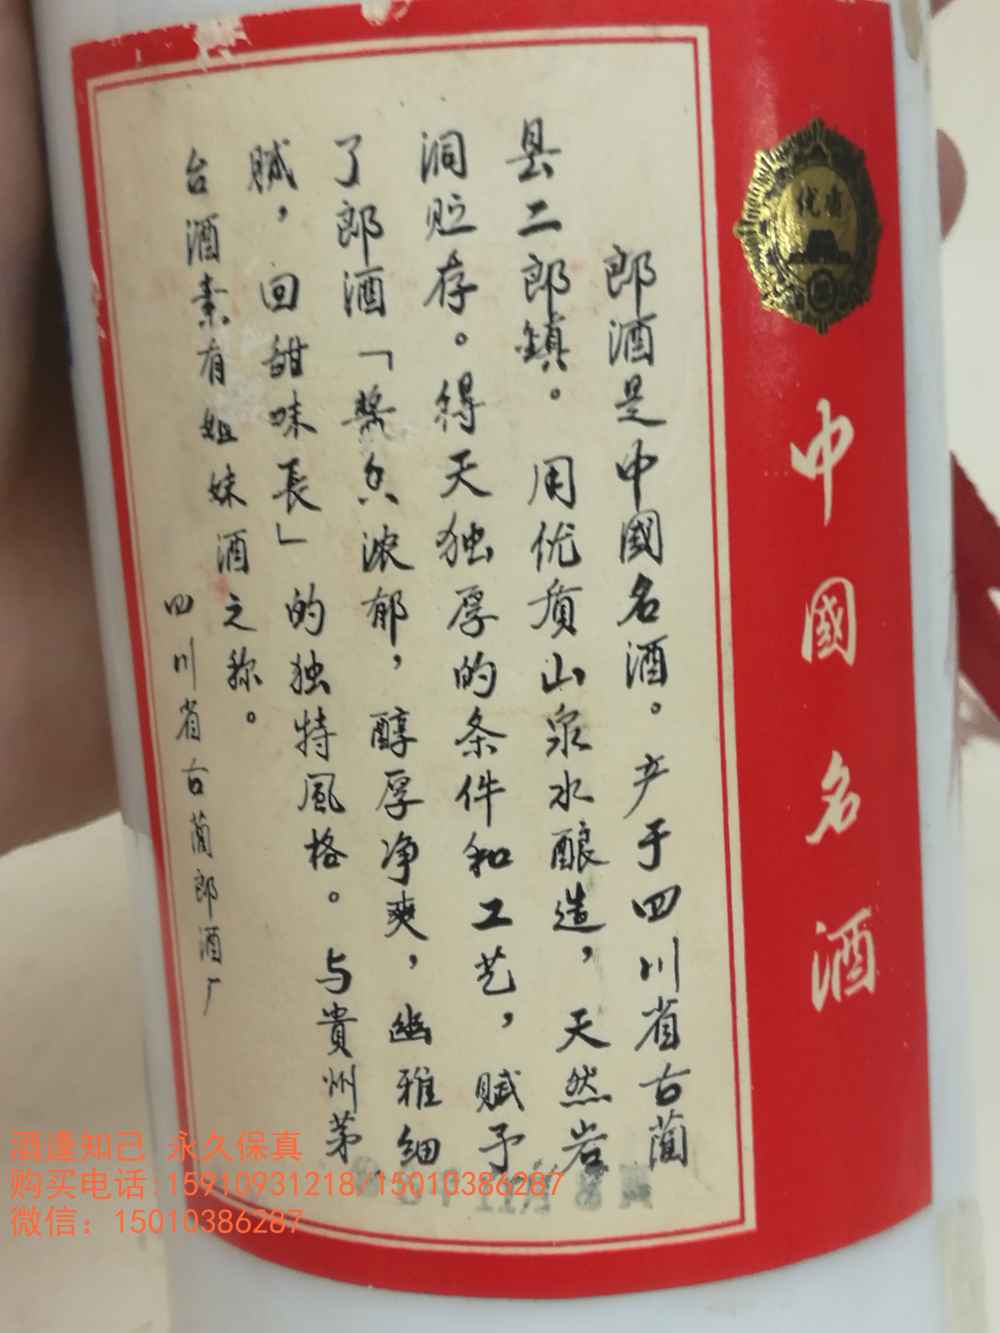 郎酒是中國名酒。产于四川省古蔺
县二郎鎮。用优质山泉水酿造，天然岩
洞贮存。得天独厚的条件和工艺，赋予
了郎酒「酱香浓郁，醇厚净爽，幽雅细
腻，回甜味長」的独特風格。与貴州茅
台酒素有姐妹酒之称。
四川省古蔺郎酒厂
中國名酒
酒逢知己 永久保真
购买电话:15910931218/15010386287
微信：15010386287